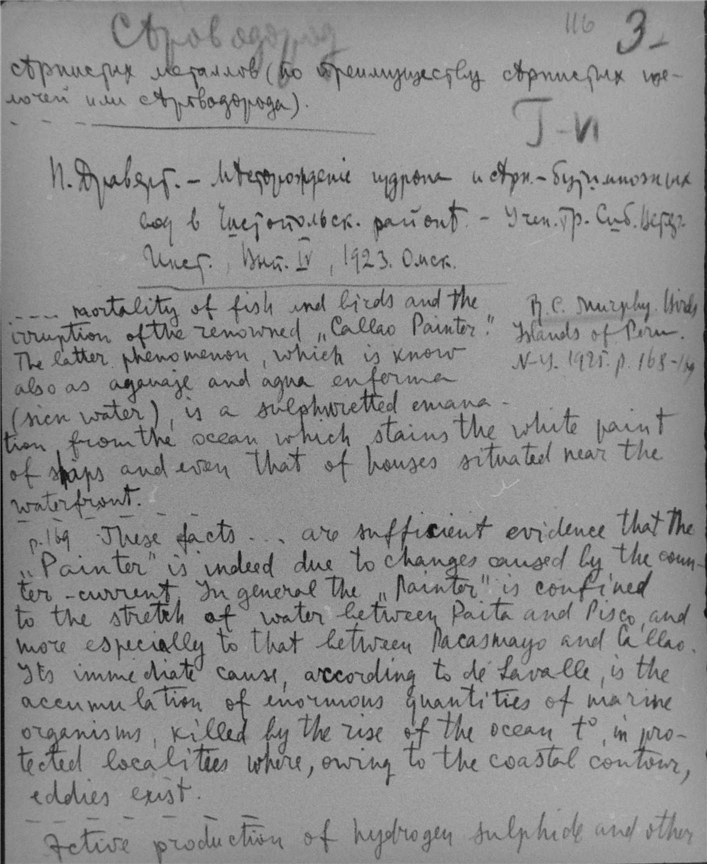 Сѣроводород 116 3-
сѣрнистых металлов (по преимуществу сѣрнистых ще-
лочей или сѣроводорода).
Г-и
П. Драверт. – Мѣсторожденіе гудрона и сѣрн.-битуминозных
вод в Чистопольск. районѣ. – Учен. Тр. Сиб. Ветер.
Инст., Вып. IV, 1923. Омск.
---- mortality of fish and birds and the
irruption of the renowned „Callao Painter."
The latter phenomenon, which is know
also as aguaje and agua enferma
(sicn water), is a sulphuretted emana-
tion from the ocean which stains the white paint
of ships and even that of houses situated near the
waterfront.
R. C. Murphy. Birds
Islands of Peru.
N-Y. 1925. p. 168-169
p. 169 These facts ... are sufficient evidence that the
„Painter" is indeed due to changes caused by the coun-
ter-current. In general the „Painter" is confined
to the stretch of water between Paita and Pisco, and
more especially to that between Pacasmayo and Callao.
Its immediate cause, according to de Lavalle, is the
accumulation of enormous quantities of marine
organisms, killed by the rise of the ocean t°, in pro-
tected localities where, owing to the coastal contour,
eddies exist.
Active production of hydrogen sulphide and other